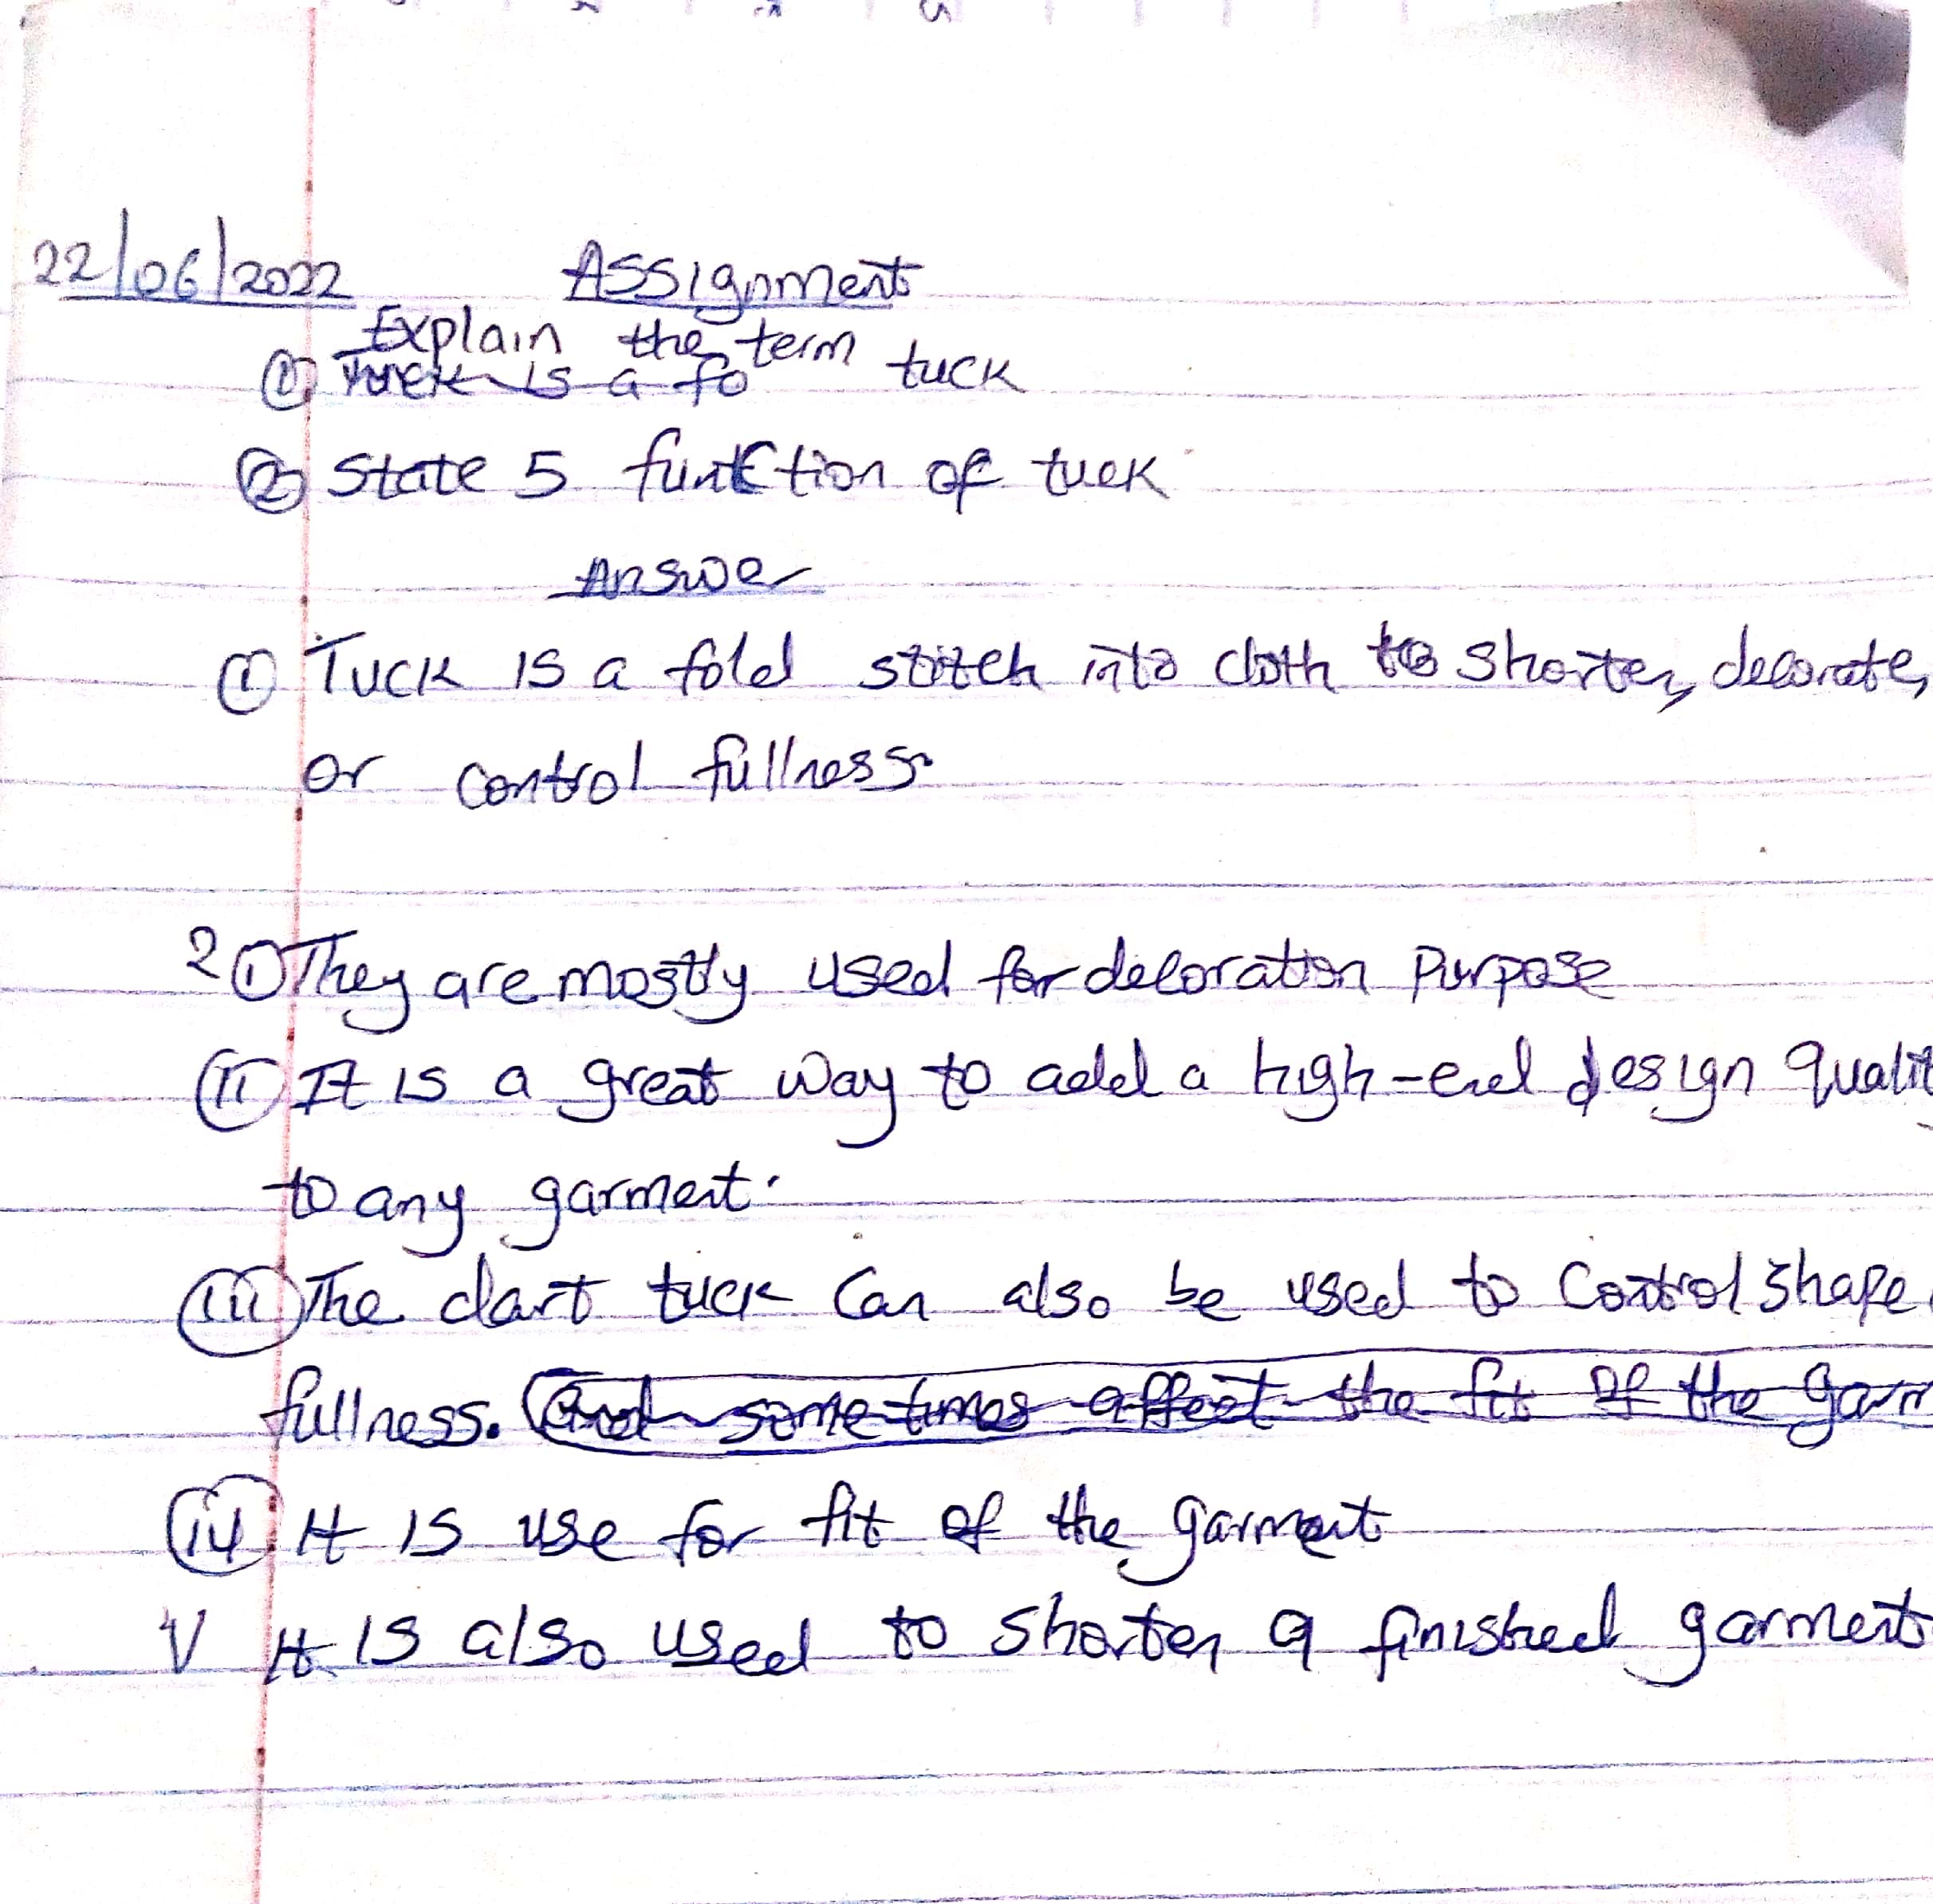 22/06/2022 Assignment
Explain the term
① Tuck is a fo tuck
② State 5 function of tuck
Answer
① Tuck is a fold stitch into cloth to shorten, decorate,
or control fullness.
2 ① They are mostly used for decoration purpose
(ii) It is a great way to add a high-end design qualit
to any garment.
(iii) The dart tuck can also be used to control shape
fullness. And sometimes affect the fit of the garm
(iv) It is use for fit of the garment
V It is also used to shorten a finished garment